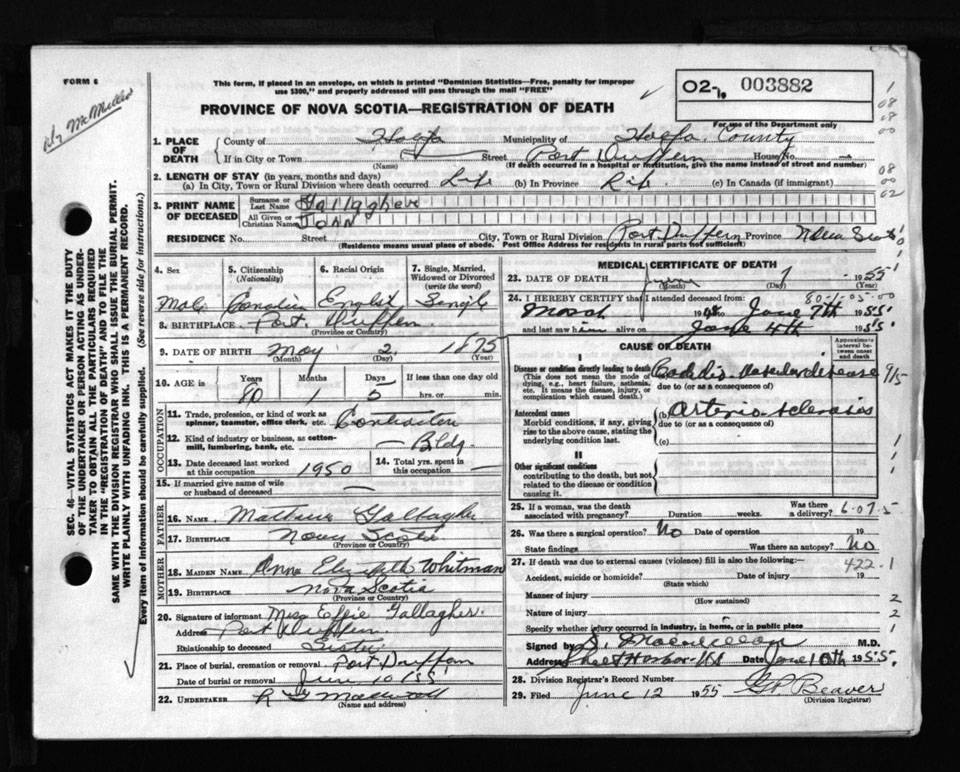 FORM 6
This form, if placed in an envelope, on which is printed "Dominion Statistics—Free, penalty for improper
use $300," and properly addressed will pass through the mail "FREE"
02- 003882
PROVINCE OF NOVA SCOTIA—REGISTRATION OF DEATH
For use of the Department only
1. PLACE OF DEATH
County of Municipality of County
If in City or Town Street Port Dufferin House No.
(Name) (If death occurred in a hospital or institution, give the name instead of street and number)
2. LENGTH OF STAY (in years, months and days)
(a) In City, Town or Rural Division where death occurred Life (b) In Province Life (c) In Canada (if immigrant)
3. PRINT NAME OF DECEASED
Surname or Last Name
All Given or Christian Names JOHN
RESIDENCE No. Street City, Town or Rural Division Port Dufferin Province Nova Scotia
(Residence means usual place of abode. Post Office Address for residents in rural parts not sufficient)
4. Sex 5. Citizenship (Nationality) 6. Racial Origin 7. Single, Married, Widowed or Divorced (write the word)
8. BIRTHPLACE Port Dufferin
(Province or Country)
9. DATE OF BIRTH May 2 1875
(Month) (Day) (Year)
10. AGE in Years Months Days If less than one day old
80 1 5 hrs. or min.
OCCUPATION
11. Trade, profession, or kind of work as spinner, teamster, office clerk, etc. Contractor
12. Kind of industry or business, as cotton-mill, lumbering, bank, etc. Bldg.
13. Date deceased last worked at this occupation 1950 14. Total yrs. spent in this occupation —
15. If married give name of wife or husband of deceased —
FATHER
16. NAME Gallagher
17. BIRTHPLACE Nova Scotia
(Province or Country)
MOTHER
18. MAIDEN NAME Anna Elizabeth Whitman
19. BIRTHPLACE Nova Scotia
(Province or Country)
20. Signature of informant Miss Effie Gallagher.
Address Port Dufferin
Relationship to deceased Sister
21. Place of burial, cremation or removal Port Dufferin
Date of burial or removal June 10/55
22. UNDERTAKER
(Name and address)
MEDICAL CERTIFICATE OF DEATH
23. DATE OF DEATH June 7 1955
(Month) (Day)
80-1-05-00
24. I HEREBY CERTIFY that I attended deceased from:
19 to June 7th 1955
and last saw him alive on June 4th 1955
CAUSE OF DEATH
Approximate interval between onset and death
I
Disease or condition directly leading to death
(This does not mean the mode of dying, e.g., heart failure, asthenia, etc. It means the disease, injury, or complication which caused death.)
due to (or as a consequence of)
Antecedent causes
Morbid conditions, if any, giving rise to the above cause, stating the underlying condition last.
(b) arterio-sclerosis
due to (or as a consequence of)
(c)
II
Other significant conditions
contributing to the death, but not related to the disease or condition causing it.
25. If a woman, was the death associated with pregnancy? Duration weeks. Was there a delivery?
26. Was there a surgical operation? No Date of operation 19
State findings Was there an autopsy? No
27. If death was due to external causes (violence) fill in also the following:—
422.1
Accident, suicide or homicide? Date of injury 19
(State which)
Manner of injury
(How sustained)
Nature of injury
Specify whether injury occurred in industry, in home, or in public place
Signed by M.D.
Address Sheet Harbor NS Date June 10th 1955.
28. Division Registrar's Record Number
29. Filed June 12 1955 G P Beaver
(Division Registrar)
SEC. 46—VITAL STATISTICS ACT MAKES IT THE DUTY
OF THE UNDERTAKER OR PERSON ACTING AS UNDER-
TAKER TO OBTAIN ALL THE PARTICULARS REQUIRED
IN THE "REGISTRATION OF DEATH" AND TO FILE THE
SAME WITH THE DIVISION REGISTRAR WHO SHALL ISSUE THE BURIAL PERMIT.
WRITE PLAINLY WITH UNFADING INK. THIS IS A PERMANENT RECORD.
Every item of information should be carefully supplied. (See reverse side for instructions.)